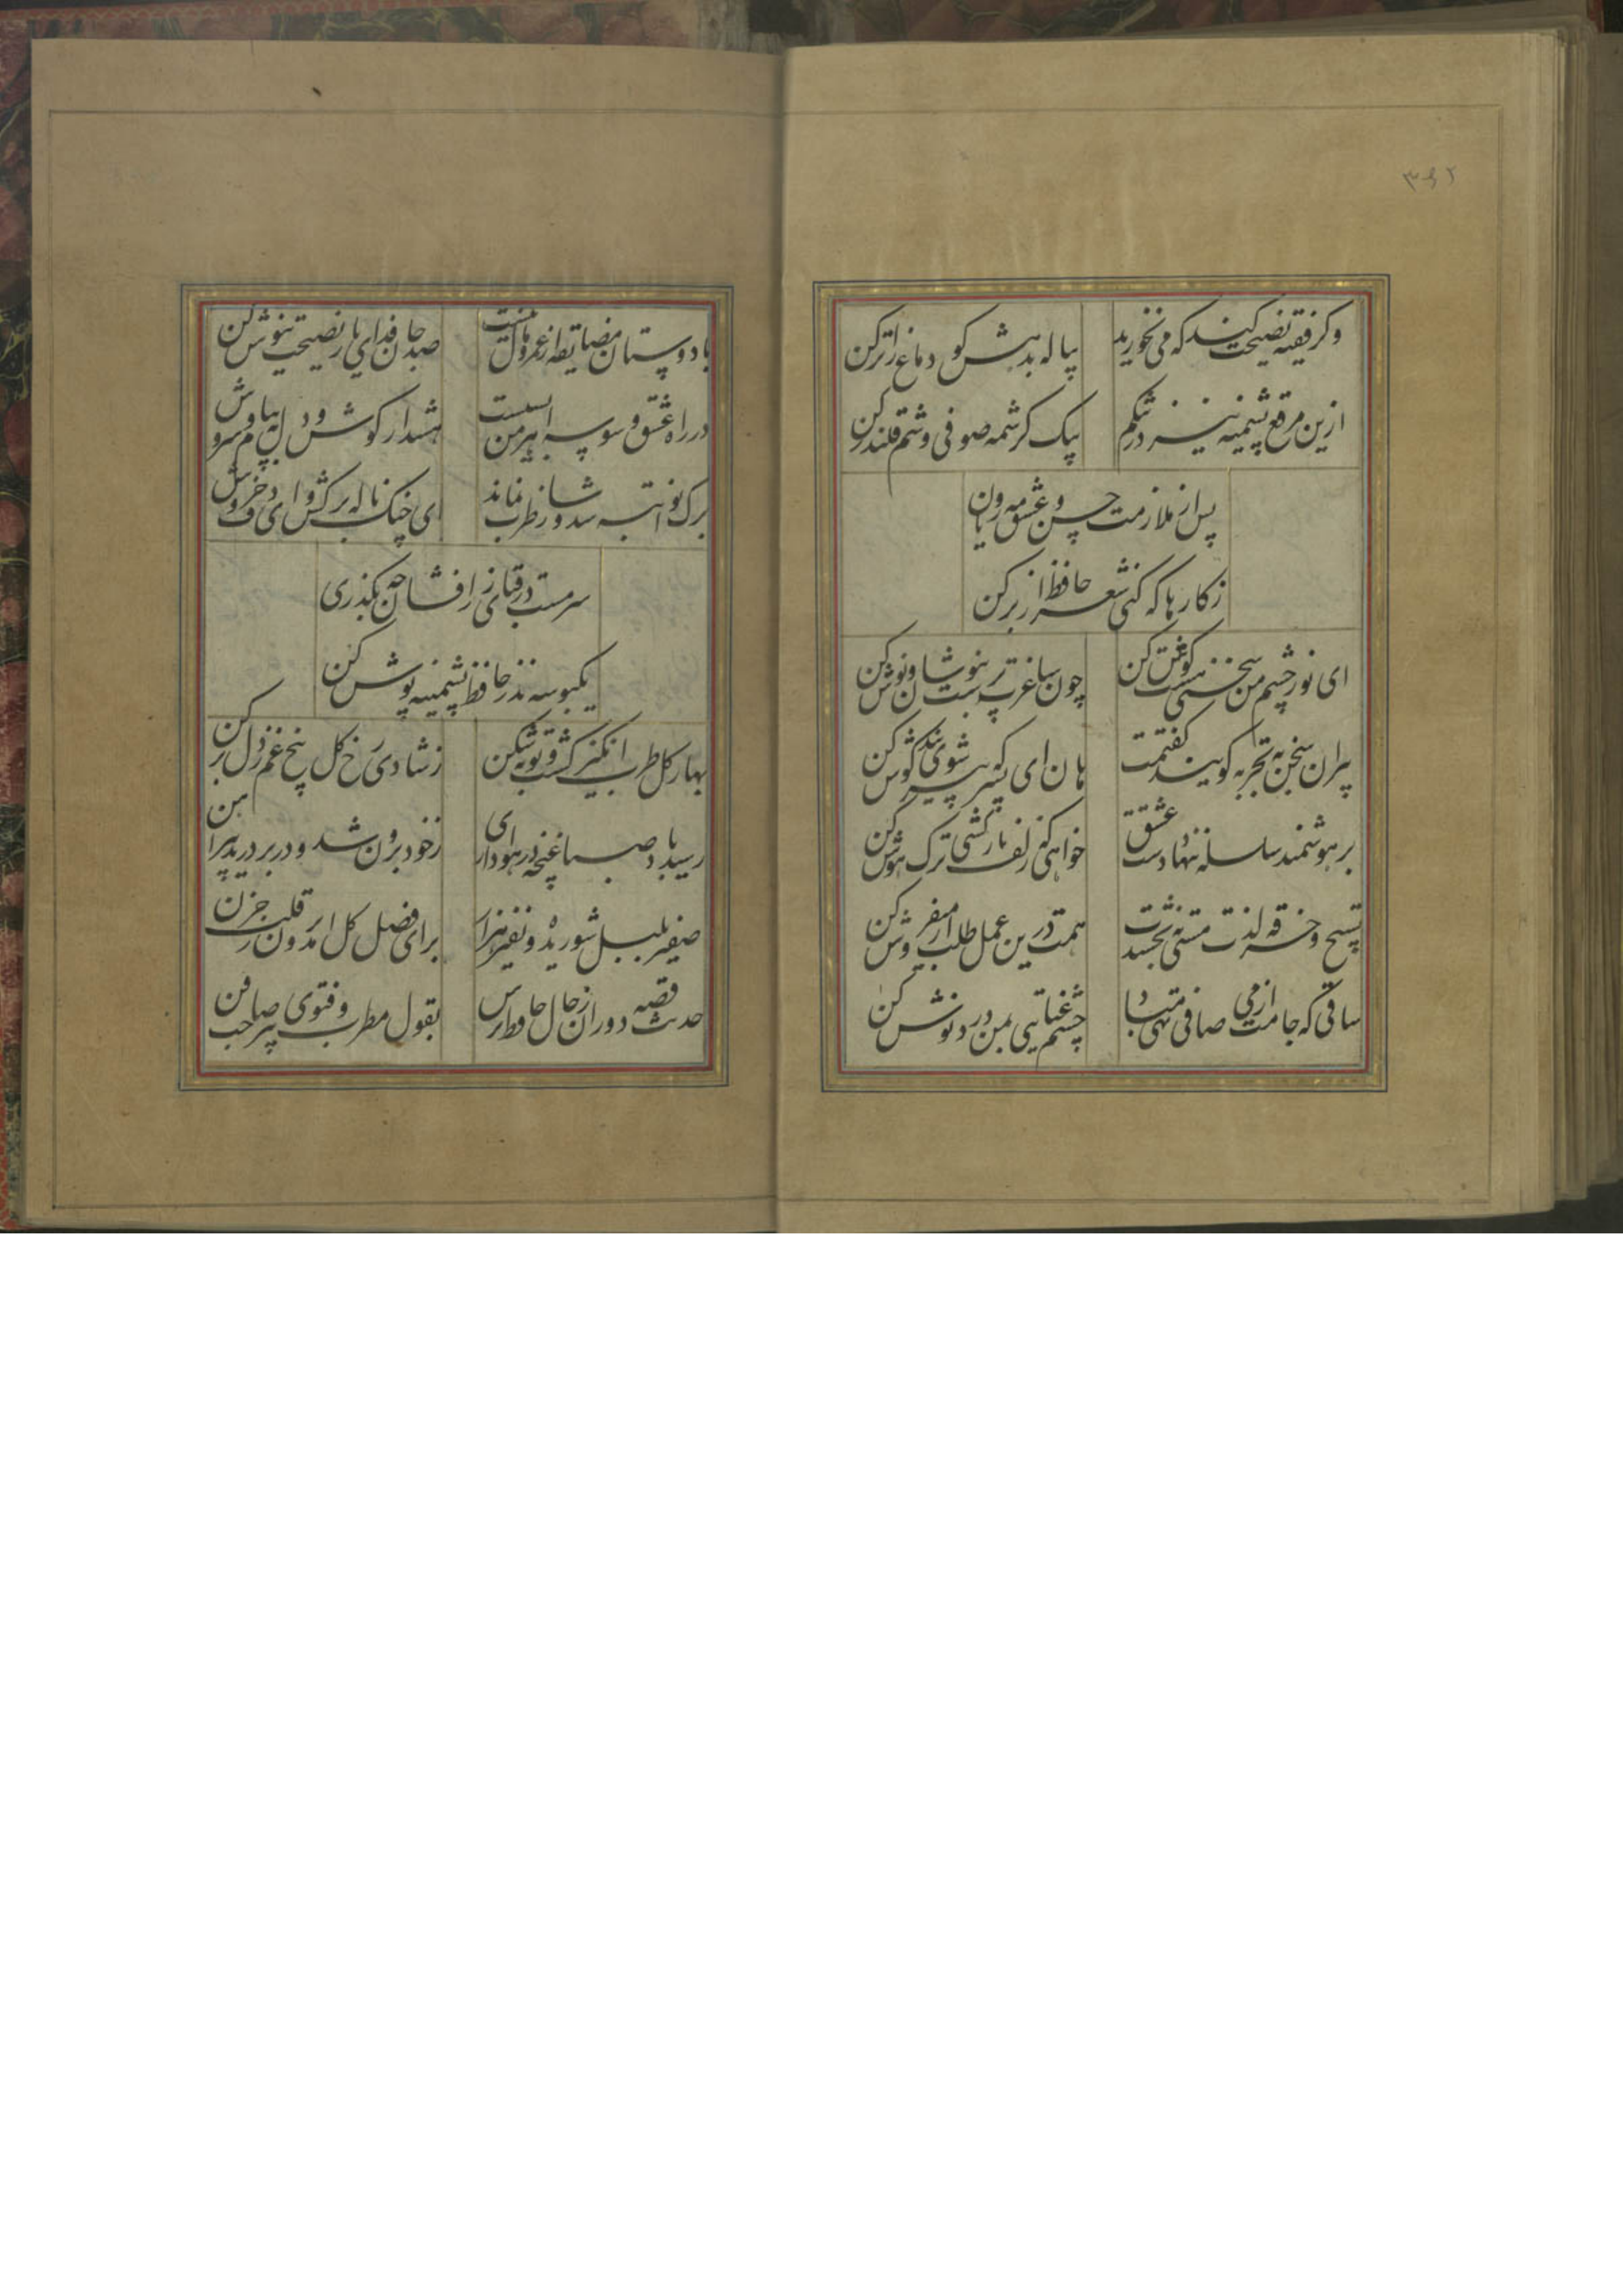 ۳۶۲
وکر فقیه نصیحت کند که می نخورید پیاله بدهش کو دماغ را تر کن
ازین مرقع پشمینه نیز در تنکم بیک کرشمه صوفی وشم قلندر کن
پس از ملازمت حسن و عشق مه رویان
ز کارها که کنی شعر حافظ از بر کن
ای نور چشم من سخنی هست کوش کن چون ساغرت پرست بنوشان و نوش کن
پیران سخن به تجربه کویند کفتمت هان ای پسر که پیر شوی پند کوش کن
بر هوشمند سلسله ننهاد دست عشق خواهی که زلف یار کشی ترک هوش کن
تسبیح و خرقه لذت مستی نبخشدت همت درین عمل طلب از می فروش کن
ساقی که جامت از می صافی تهی مباد چشم عنایتی بمن دردنوش کن
با دوستان مضایقه از عمر و مال نیست صد جان فدای یار نصیحت نیوش کن
در راه عشق وسوسه اهرمن بسیست هشدار و کوش دل به پیام سروش کن
برک نوا تبه شد و ساز طرب نماند ای چنک ناله برکش و ای دف خروش کن
سرمست در قبای زرافشان چو بکذری
یکبوسه نذر حافظ پشمینه پوش کن
بهار کل طرب انکیز کشت و توبه شکن ز شادی رخ کل بیخ غم ز دل برکن
رسید باد صبا غنچه در هواداری ز خود برون شد و در بر درید پیراهن
صفیر بلبل شوریده و نفیر هزار برای فصل کل آمد برون ز قلب حزن
حدیث قصه دوران ز حال حافظ پرس بقول مطرب و فتوی پیر صاحب فن